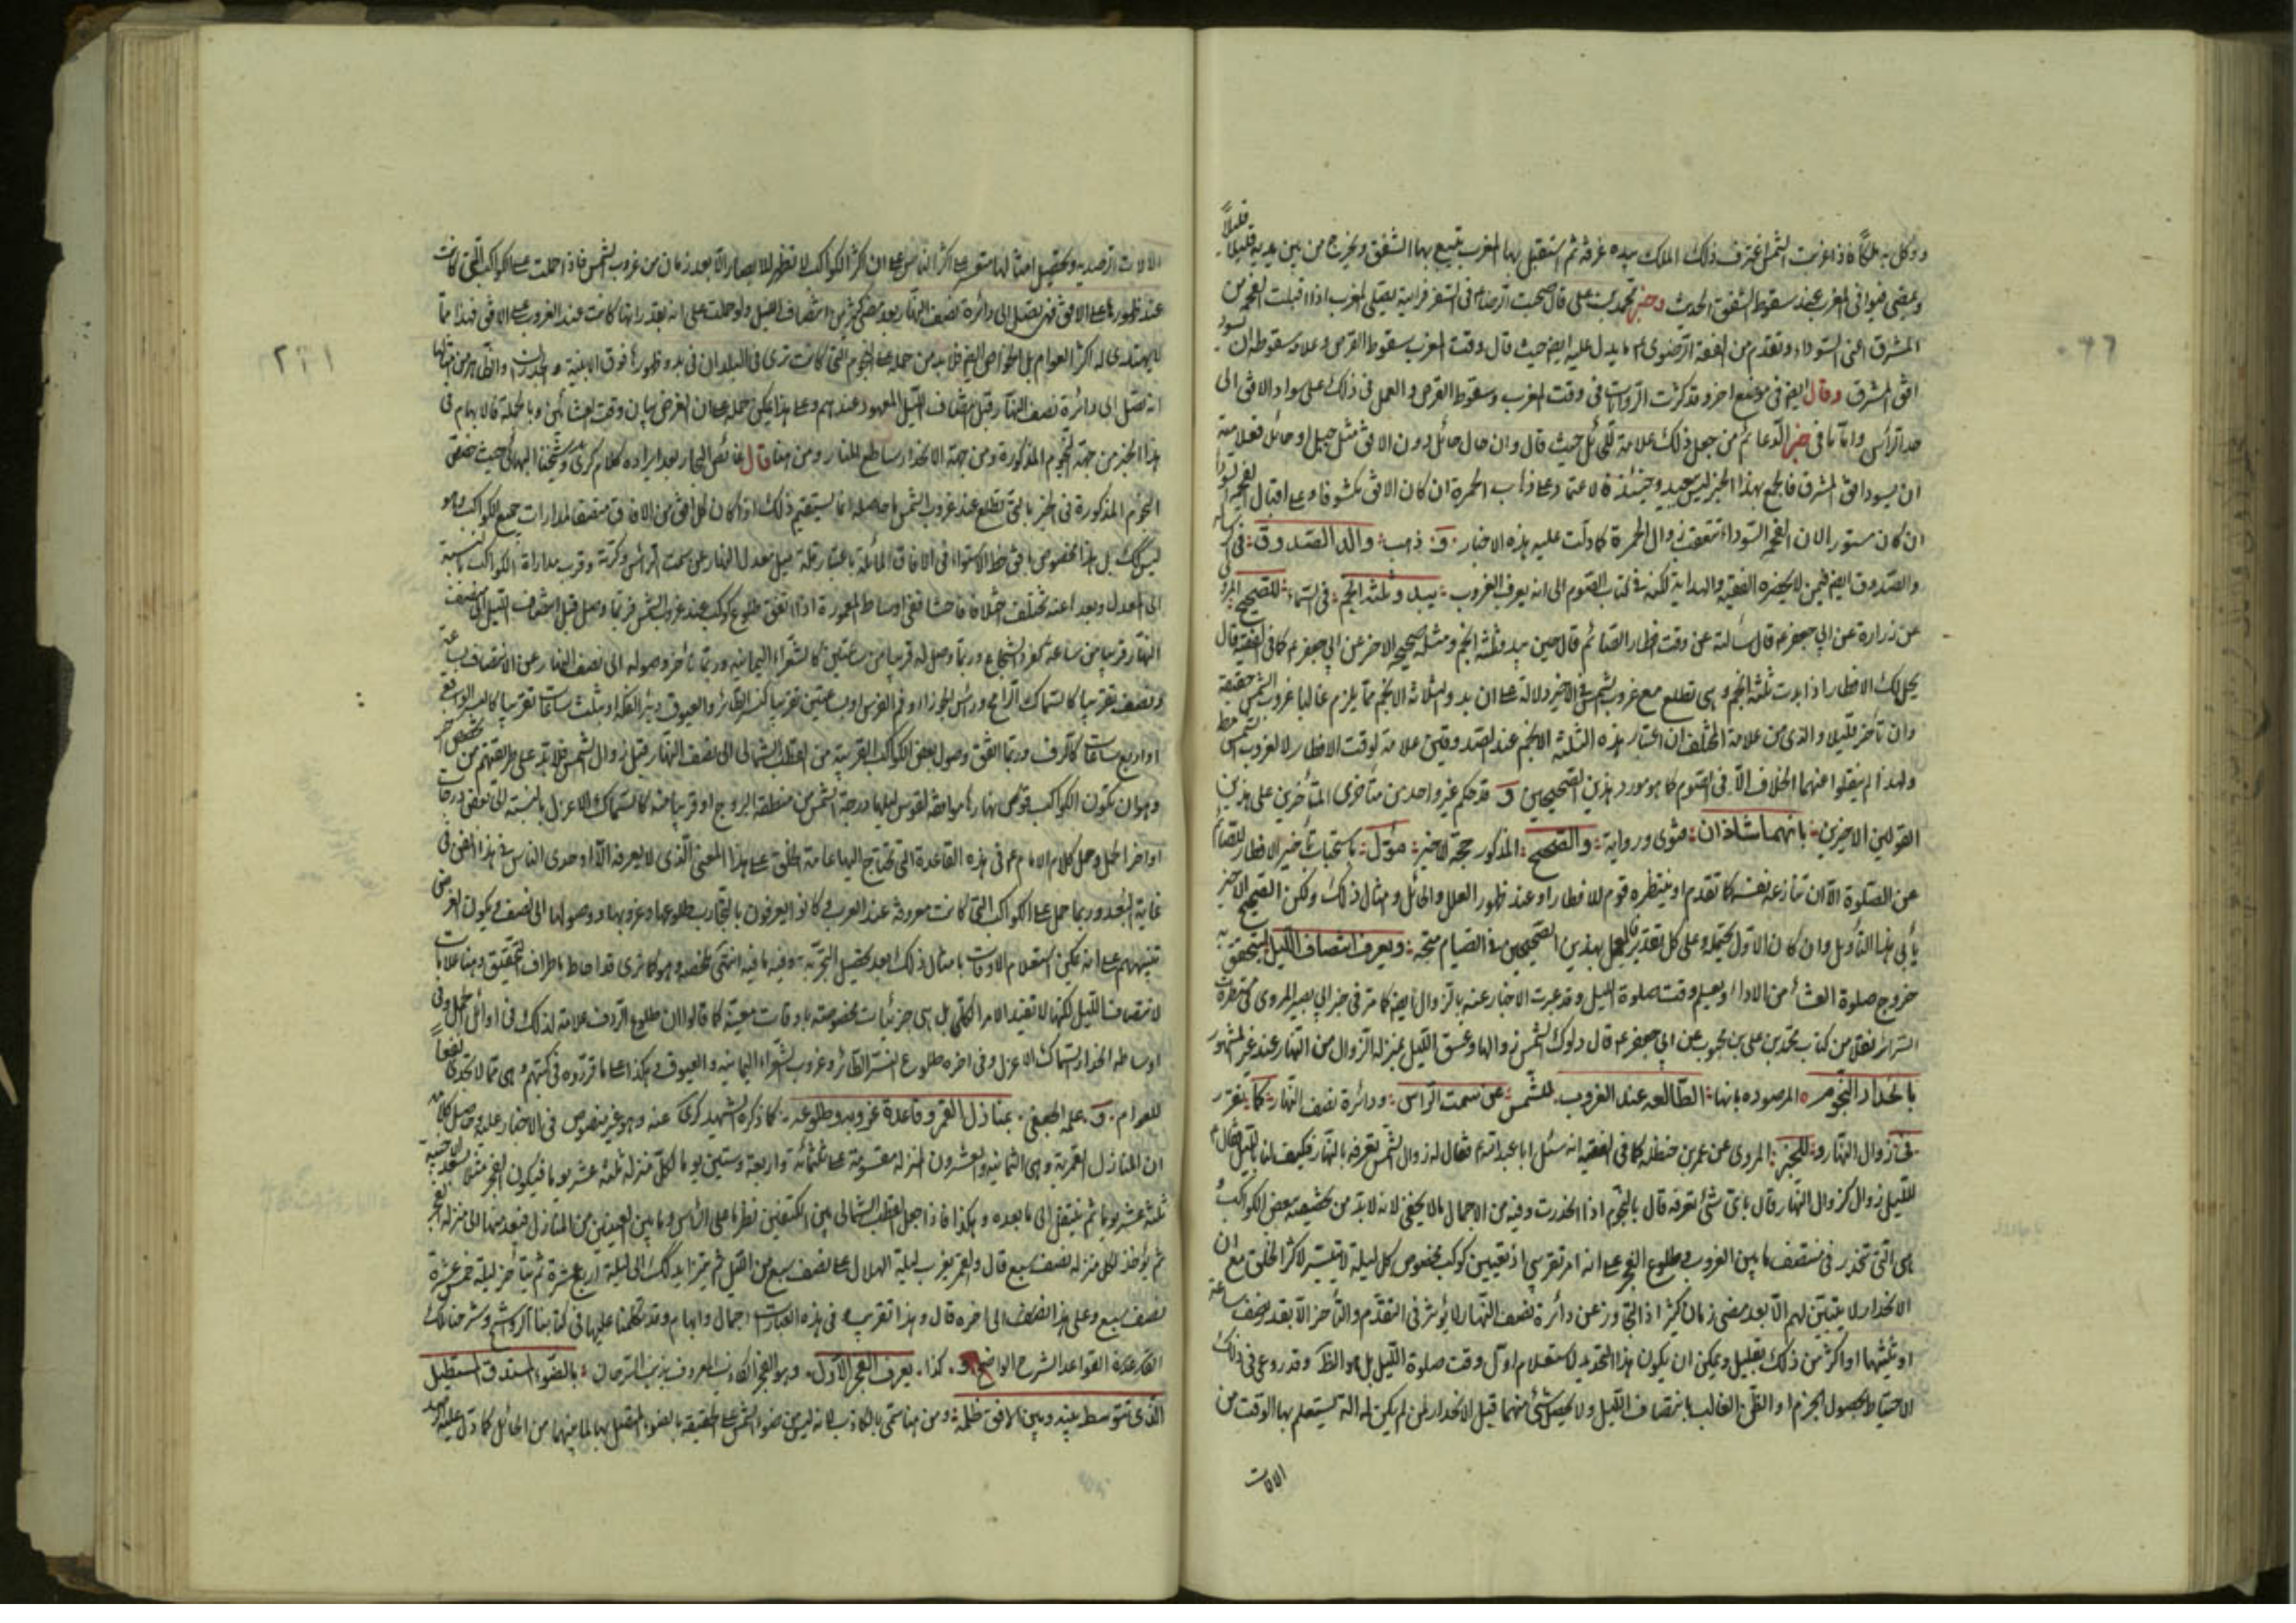 ووكل به ملكا فاذا غربت الشمس اغترف ذلك الملك بيده غرفة ثم استقبل بها المغرب يتبع بها الشفق ويخرج من بين يديه قليلا قليلا
ويمضى فيوافى المغرب عند سقوط الشفق الحديث وخبر محمد بن على قال صحبت الرضا ع فى السفر فرايته يصلى المغرب اذا اقبلت الفحمة من
المشرق اعنى السواد وتقدم من الفقه الرضوى ما يدل عليه ايض حيث قال وقت المغرب سقوط القرص وعلامة سقوطه ان يسود
افق المشرق وقال ايض فى موضع اخر وقد كثرت الروايات فى وقت المغرب وسقوط القرص والعمل فى ذلك على سواد الافق الى
حد الراس واما ما فى خبر الدعائم من جعل ذلك علامة للحائل حيث قال وان حال حائل دون الافق مثل جبل او حائط فعلامته
ان يسود افق المشرق فالجمع بهذا الخبر ليس ببعيد وحينئذ فالاعتماد على ذهاب الحمرة ان كان الافق مكشوفا وعلى اقبال الفحمة السوداء
ان كان مستورا لان الفحمة السوداء تتعقب زوال الحمرة كما دلت عليه هذه الاخبار و ذهب والد الصدوق فى رسالته
والصدوق ايض فيمن لا يحضره الفقيه والهداية لكنه فى كتاب الصوم الى انه يعرف الغروب ببدو ثلثة انجم فى السماء للصحيح المروى
عن زرارة عن ابي جعفر ع قال سالته عن وقت افطار الصائم قال حين يبدو ثلثة انجم ومثله صحيحه الاخر عن ابي جعفر ع كما فى الفقيه قال
يحل لك الافطار اذا بدت ثلثة انجم وهى تطلع مع غروب الشمس وفى الاخير دلالة على ان بدو الثلاثة الانجم مما يلزم غالبا غروب الشمس حقيقة
وان تأخر قليلا والذى من علامة المختلف ان اعتبار هذه الثلثة الانجم عند الصدوقين علامة لوقت الافطار لا لغروب الشمس مط
ولهذا لم ينقلوا عنهما الخلاف الا فى الصوم كما هو مورد هذين الصحيحين و قد حكم غير واحد من متأخرى المتأخرين على هذين
القولين الاخيرين بانهما شاذان فتوى ورواية والصحيح المذكور حجة للاخير مؤول باستحباب تأخير الافطار للصائم
عن الصلوة الا ان تنازعه نفسه كما تقدم او ينتظره قوم للافطار او عند ظهور العلل والحائل ومثال ذلك ولكن الصحيح الاخير
يأبى هذا التأويل وان كان الاول يحتمله وعلى كل تقدير فالعمل بهذين الصحيحين فى الصيام متجه ويعرف انتصاف الليل ليتحقق به
خروج صلوة العشاء من الاداء ويعلم وقت صلوة الليل وقد عبرت الاخبار عنه بالزوال ايض كما مر فى خبر ابي بصير المروى فى مستطرفات
السرائر نقلا من كتاب محمد بن على بن محبوب عن ابي جعفر ع قال دلوك الشمس زوالها وغسق الليل بمنزلة الزوال من النهار عند غير المشهور
بانحدار النجوم المرصوده بانها الطالعه عند الغروب للشمس عن سمت الراس ودائرة نصف النهار كما يتقرر
فى زوال النهار و للخبر المروى عن عمر بن حنظله كما فى الفقيه انه سئل ابا عبد الله ع فقال له زوال الشمس نعرفه بالنهار فكيف لنا بالليل فقال ع
لليل زوال كزوال النهار قال باى شئ نعرفه قال بالنجوم اذا انحدرت وفيه من الاجمال ما لا يخفى لانه لا بد من تخصيصه ببعض الكواكب
هى التى تنحدر فى منتصف ما بين الغروب وطلوع الفجر على انه امر تقريبى اذ تعيين كوكب مخصوص كل ليلة لا يتيسر لاكثر الخلق مع ان
الانحدار لا يتبين لهم الا بعد مضى زمان كثير اذ التجاوز عن دائرة نصف النهار لا يؤثر فى التقدم والتأخر الا بقدر نصف ساعة
او ثلثيها او اكثر من ذلك بقليل ويمكن ان يكون هذا التحديد لاستعلام اول وقت صلوة الليل بل هو الظ وقد روعى فى ذلك
الاحتياط لحصول الجزم او الظن الغالب بانتصاف الليل ولا يحصل شئ منهما قبل الانحدار لمن لم يكن له آلة يستعلم بها الوقت من
الالات
الالات الرصديه وتحصيل امثالها متعسر على اكثر الناس على ان اكثر الكواكب لا تظهر للابصار الا بعد زمان من غروب الشمس فاذا حملت على الكواكب التى كانت
عند ظهورها على الافق فهى تصل الى دائرة نصف النهار بعد مضى كثير من انتصاف الليل ولو حملت على انه بقدر انها كانت عند الغروب على الافق فهذا مما
لا يهتدى له اكثر العوام بل الخواص ايض فلا بد من حمله على النجوم التى كانت ترى فى البلدان فى بدو ظهورها فوق الابنية والجدران والظ من مثلها
انه تصل الى دائرة نصف النهار قبل انتصاف الليل المعهود عندهم وعلى هذا يمكن حمله على ان الغرض بيان وقت العشائين وبالجملة فالابهام فى
هذا الخبر من جهة النجوم المذكورة ومن جهة الانحدار ساطع المنار ومن هنا قال غائص البحار بعد ايراده كلام كرى وشيخنا البهائى حيث خص
النجوم المذكورة فى الخبر بالتى تطلع عند غروب الشمس ما حاصله انما يستقيم ذلك اذا كان كل افق من الافاق منصفا لمدارات جميع الكواكب وهو
ليس كك بل هذا مخصوص بافق خط الاستواء فى الافاق المائلة باعتبار قلة ميل معدل النهار عن سمت الراس وكثرته وقرب مدارات الكواكب بالنسبة
الى المعدل وبعدها عنه تختلف اختلافا فاحشا ففى اوساط المعمورة اذا اتفق طلوع كوكب عند غروب الشمس فربما وصل قبل انتصاف الليل الى نصف
النهار قريبا من ساعة كفرد الشجاع وربما وصل له قريبا من ساعتين كالشعراء اليمانية وربما تأخر وصوله الى نصف النهار عن الانتصاف بساعة
ونصف تقريبا كالسماك الرامح وراس الجوزاء وفم الفرس او بساعتين تقريبا كنسر الطائر والعيوق ونير الفكة او بثلث ساعات تقريبا كالنسر الواقع
او اربع ساعات كالردف وربما اتفق وصول بعض الكواكب القريبة من القطب الشمالى الى نصف النهار قبل زوال الشمس فلا بد على طريقتهم من تخصيص اخر
وهو ان تكون الكواكب قوس نهارها موافقة لقوس ليلها ودرجة الشمس من منطقة البروج او قريبا منه كالسماك الاعزل بالنسبة الى بعض درجات
اواخر الحمل وحمل كلام الامام ع فى هذه القاعدة التى تحتاج اليها عامة الخلق على هذا المعنى الذى لا يعرفه الا اوحدى الناس فى هذا الفن فى
غاية البعد وربما حمل على الكواكب التى كانت معروفة عند العرب وكانوا يعرفون بالتجارب طلوعها وغروبها ووصولها الى نصف ويكون الغرض
تنبيههم على انه يمكن استعلام الاوقات بامثال ذلك بعد تحصيل التجربة وفيه ما فيه انتهى ملخصه وهو كما ترى قد احاط باطراف التحقيق وهنا علامات
لانتصاف الليل لكنها لا تفيد الامر الكلى بل هى جزئيات مخصوصة باوقات معينة كما قالوا ان طلوع الردف علامة لذلك فى اوائل الحمل وفى
اوساطه انحدار السماك الاعزل وفى اخره طلوع النسر الطائر وغروب الشعراء اليمانيه والعيوق وهكذا على ما قرروه فى كتبهم وهى مما لا تجدى نفعا
للعوام و علمه الجعفى بمنازل القمر وقاعدة غروبه وطلوعه كما ذكره الشهيد كرى عنه وهو غير منصوص فى الاخبار عليه وحاصل كلامه
ان المنازل القمرية وهى الثمانية والعشرون المنزله مقسومة على ثلثمائة واربعة وستين يوما لكل منزله ثلثة عشر يوما فيكون الفجر مثلا بسعد الاخبية
ثلثة عشر يوما ثم ينتقل الى ما بعده وهكذا فاذا جعل القطب الشمالى بين الكتفين نظر ما على الراس وما بين العينين من المنازل فيعد منها الى منزله الفجر
ثم يؤخذ لكل منزله نصف سبع قال والقمر يغرب ليلة الهلال على نصف سبع من الليل ثم يتزايد كك الى ليلة اربع عشرة ثم يتأخر ليلة خمس عشرة
نصف سبع وعلى هذا الضف الى اخره قال وهذا تقريب وفى هذه العبارات اجمال وابهام وقد تكلمنا عليها فى كتابنا الرواشح وشرحنا تلك
القاعدة القواعد الشرح الواضح و كذا يعرف الفجر الاول وهو الفجر الكاذب المعروف بذنب السرحان بالضوء المستدق المستطيل
الذى يتوسط بينه وبين الافق ظلمة ومن هنا سمى بالكاذب كانه ليس ضوء الشمس على الحقيقة بالضوء المتصل بها لما بينهما من الحائل كما دل عليه
٢٢١